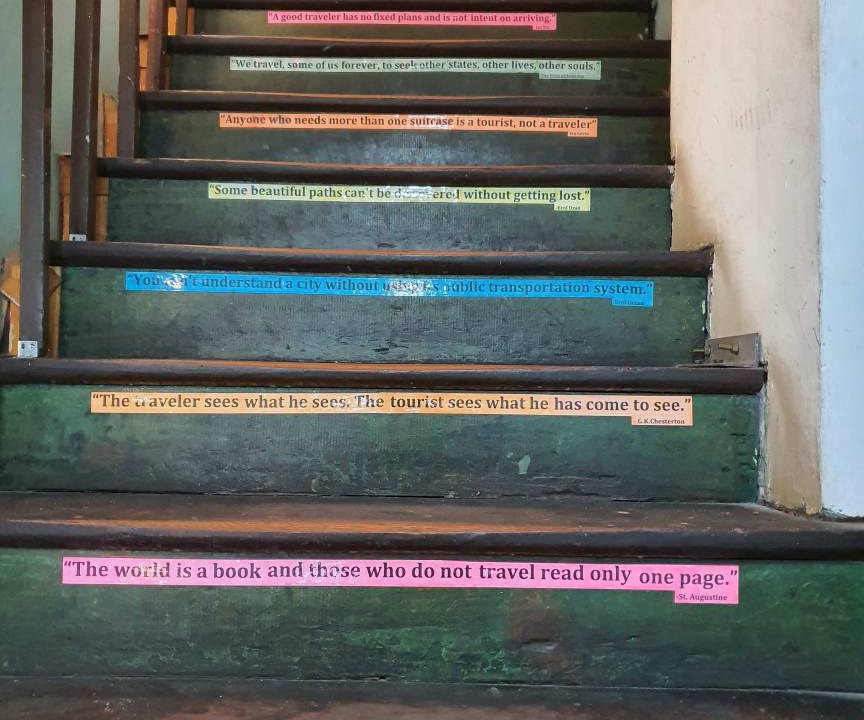 "A good traveler has no fixed plans and is not intent on arriving."
"We travel, some of us forever, to seek other states, other lives, other souls."
"Anyone who needs more than one suitcase is a tourist, not a traveler"
"Some beautiful paths can't be discovered without getting lost."
-Erol Ozan
"You can't understand a city without using its public transportation system."
-Erol Ozan
"The traveler sees what he sees. The tourist sees what he has come to see."
- G.K.Chesterton
"The world is a book and those who do not travel read only one page."
-St. Augustine